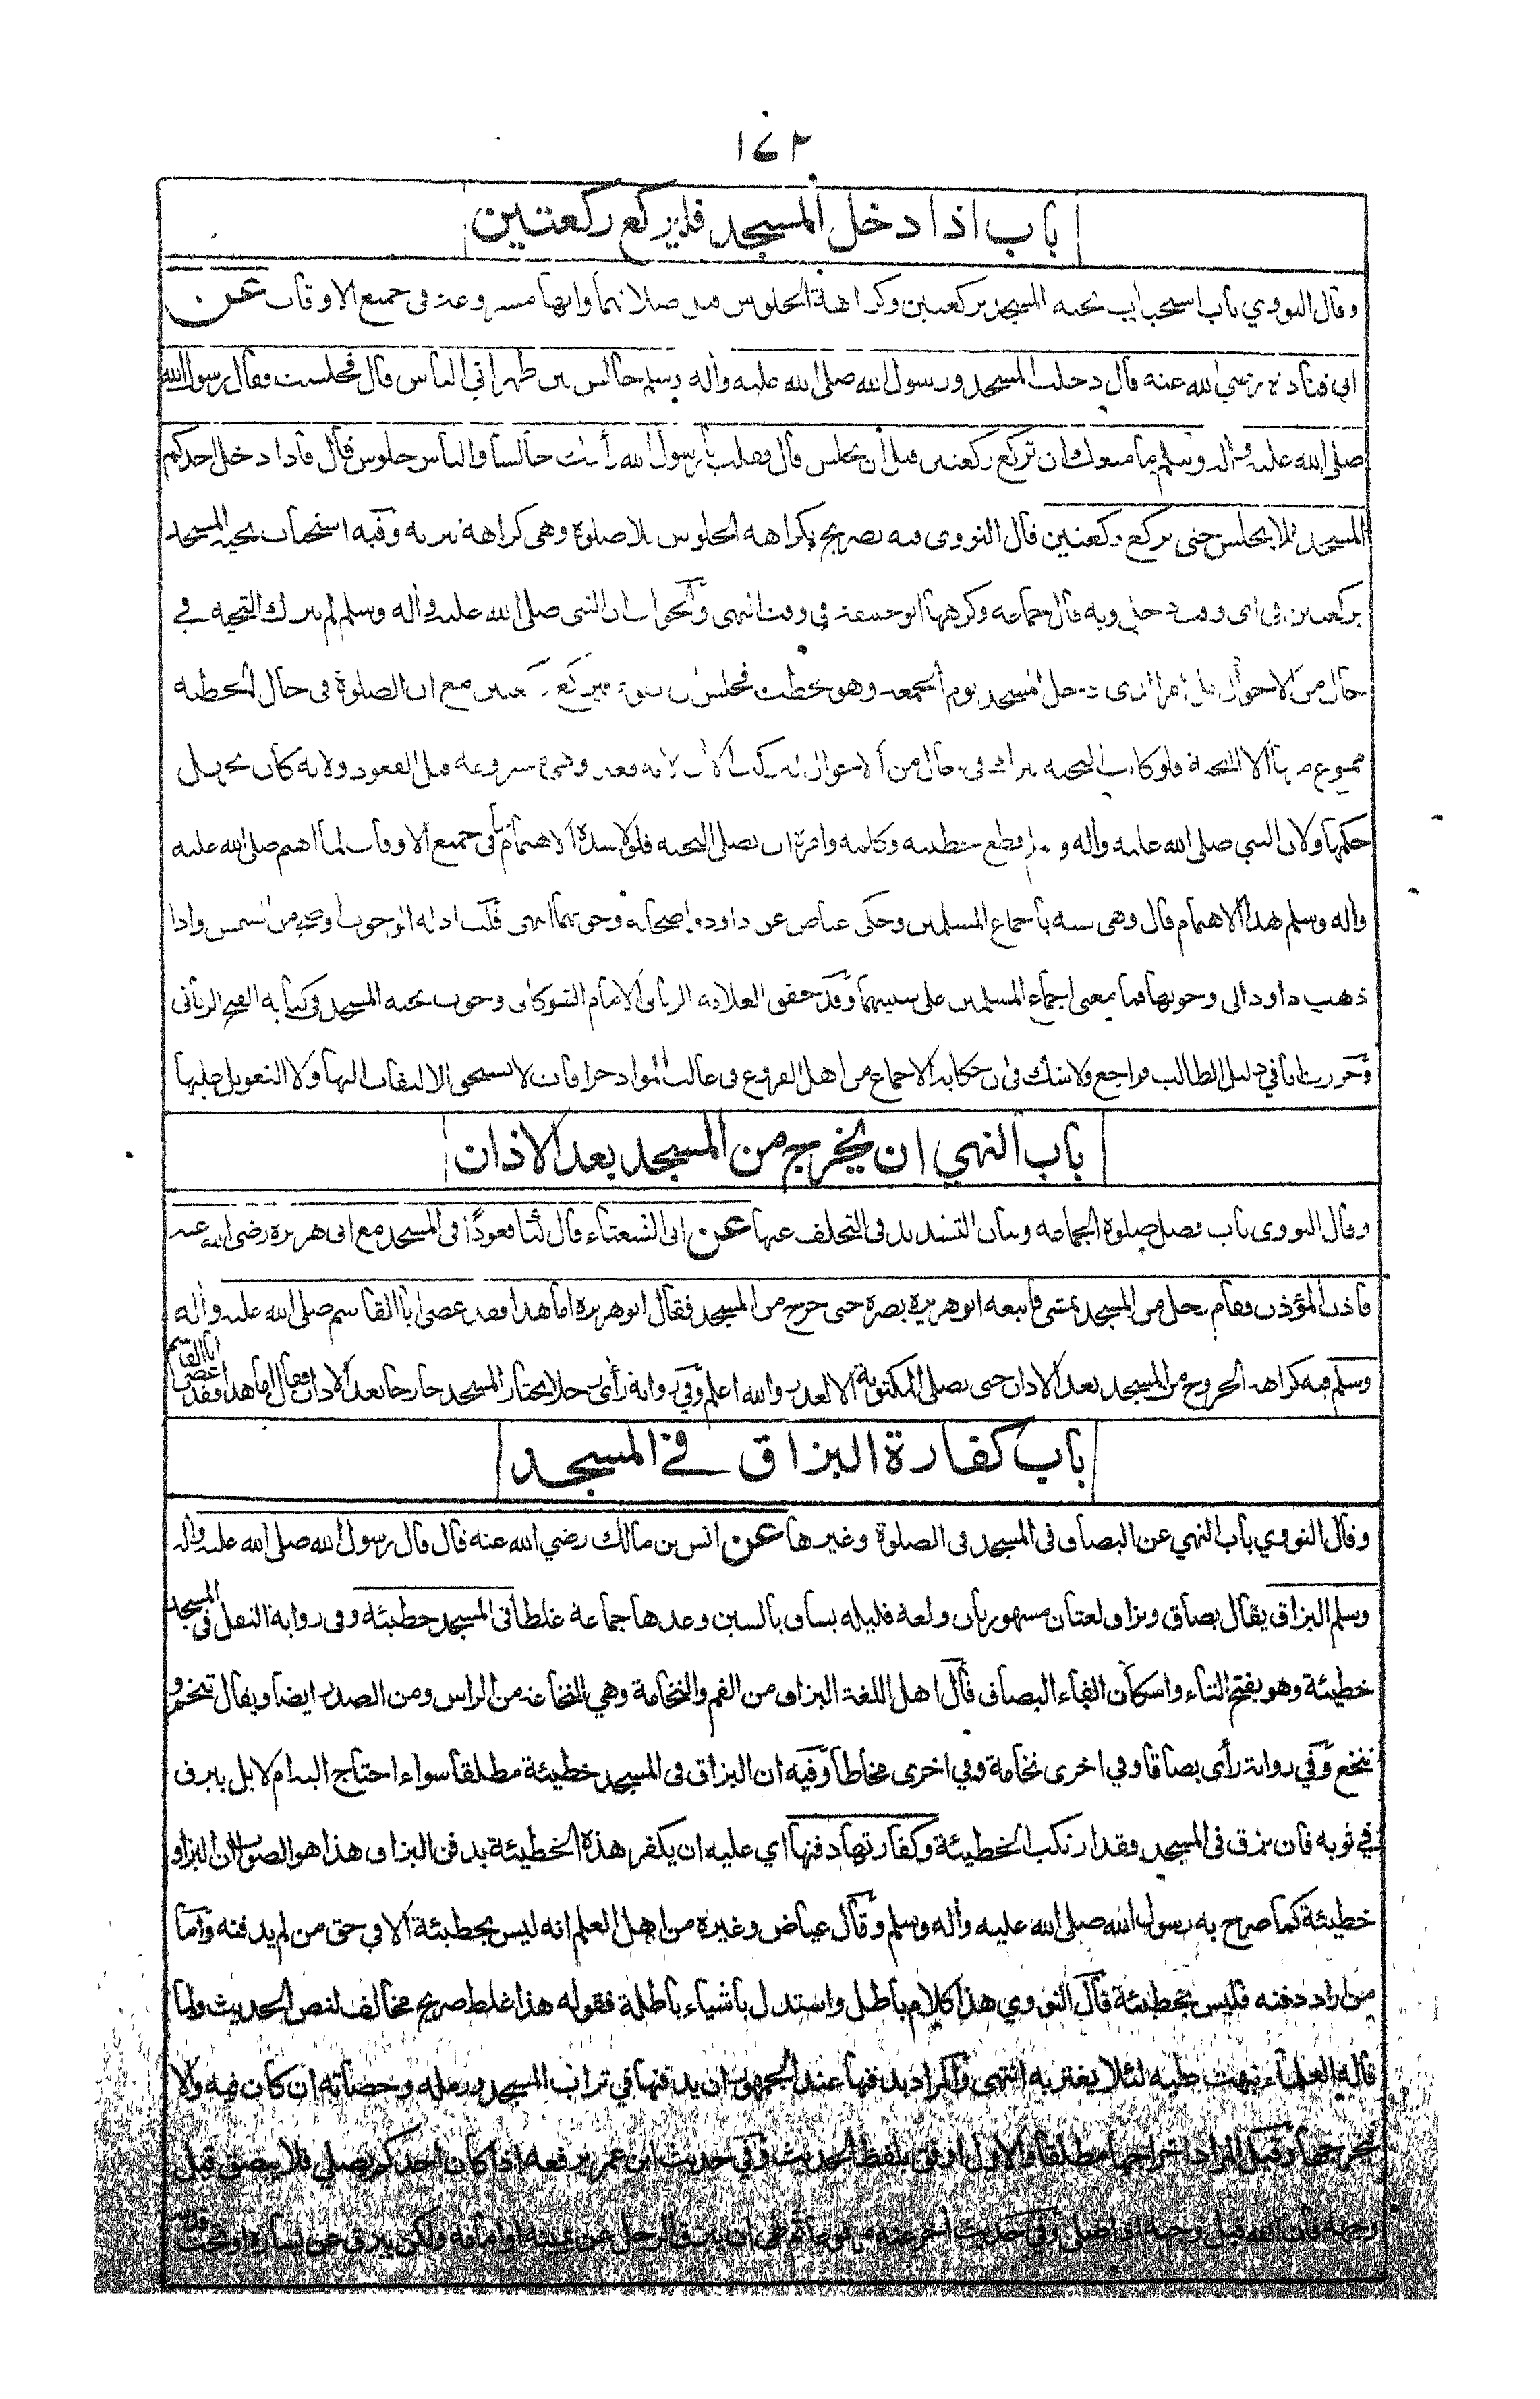 ١٧٢
باب اذا دخل المسجد فليركع ركعتين
وقال النووي باب استحباب تحية المسجد بركعتين وكراهة الجلوس قبل صلاتهما وانها مشروعة في جميع الاوقات عن
ابي قتادة رضي الله عنه قال دخلت المسجد ورسول الله صلى الله عليه واله وسلم جالس بين ظهراني الناس قال فجلست فقال رسول الله
صلى الله عليه واله وسلم ما منعك ان تركع ركعتين قبل أن تجلس قال فقلت يا رسول الله رأيتك جالسا والناس جلوس قال فاذا دخل احدكم
المسجد فلا يجلس حتى يركع ركعتين قال النووي فيه تصريح بكراهة الجلوس بلا صلوة وهي كراهة تنزيه وفيه استحباب تحية المسجد
بركعتين في اي وقت دخل وبه قال جماعة وكرهها ابو حنيفة في وقت النهي والجواب ان النبي صلى الله عليه واله وسلم لم يترك التحية في
حال من الاحوال بل امر الذي دخل المسجد يوم الجمعة وهو يخطب فجلس ان يقوم فيركع ركعتين مع ان الصلوة في حال الخطبة
ممنوع منها الا التحية فلو كانت التحية تترك في حال من الاحوال لتركت الآن لانه قعد وهي مشروعة قبل القعود ولانه كان يجهل
حكمها ولان النبي صلى الله عليه واله وسلم قطع خطبته وكلمه وامره ان يصلي التحية فلولا شدة الاهتمام بها في جميع الاوقات لما اهتم صلى الله عليه
واله وسلم هذا الاهتمام قال وهي سنة باجماع المسلمين وحكى عياض عن داود واصحابه وجوبهما انتهى قلت ادلة الوجوب اوضح من الشمس واذا
ذهب داود الى وجوبها فما معنى اجماع المسلمين على سنيتها وقد حقق العلامة الرباني الامام الشوكاني وجوب تحية المسجد في كتابه الفتح الرباني
وحررناها في دليل الطالب فراجع ولا شك في ان حكاية الاجماع من اهل الفروع في غالب المواد خرافات لا تستحق الالتفات اليها ولا التعويل عليها
باب النهي ان يخرج من المسجد بعد الاذان
وقال النووي باب فضل صلوة الجماعة وبيان التشديد في التخلف عنها عن ابي الشعثاء قال كنا قعودًا في المسجد مع ابي هريرة رضي الله عنه
فاذن المؤذن فقام رجل من المسجد يمشي فأتبعه ابو هريرة بصره حتى خرج من المسجد فقال ابو هريرة اما هذا فقد عصى ابا القاسم صلى الله عليه واله
وسلم فيه كراهة الخروج من المسجد بعد الاذان حتى يصلي المكتوبة الا لعذر والله اعلم وفي رواية رأى رجلا يجتاز المسجد خارجا بعد الاذان فقال اما هذا فقد عصى ابا القاسم
باب كفارة البزاق في المسجد
وقال النووي باب النهي عن البصاق في المسجد في الصلوة وغيرها عن انس بن مالك رضي الله عنه قال قال رسول الله صلى الله عليه واله
وسلم البزاق يقال بصاق وبزاق لغتان مشهورتان ولغة قليلة بساق بالسين وعدها جماعة غلطا في المسجد خطيئة وفي رواية التفل في المسجد
خطيئة وهو بفتح التاء واسكان الفاء البصاق قال اهل اللغة البزاق من الفم والنخامة وهي النخاعة من الراس ومن الصدر ايضا ويقال تنخم و
تنخع وفي رواية رأى بصاقا وفي اخرى نخامة وفي اخرى مخاطا وفيه ان البزاق في المسجد خطيئة مطلقا سواء احتاج اليه ام لا بل يبزق
في ثوبه فان بزق في المسجد فقد ارتكب الخطيئة وكفارتها دفنها اي عليه ان يكفر هذه الخطيئة بدفن البزاق هذا هو الصواب ان البزاق
خطيئة كما صرح به رسول الله صلى الله عليه واله وسلم وقال عياض وغيره من اهل العلم انه ليس بخطيئة الا في حق من لم يدفنه واما
من اراد دفنه فليس بخطيئة قال النووي هذا كلام باطل واستدل باشياء باطلة فقوله هذا غلط صريح مخالف لنص الحديث ولما
قاله العلماء نبهت عليه لئلا يغتر به انتهى والمراد بدفنها عند الجمهور ان يدفنها في تراب المسجد ورمله وحصاته ان كان فيه والا
فيخرجها وقيل المراد اخراجها مطلقا والاول اوفق بلفظ الحديث وفي حديث ابن عمر يرفعه اذا كان احدكم يصلي فلا يبصق قبل
وجهه فان الله قبل وجهه اذا صلى وفي حديث اخر عنه مرفوعا ثم نهى ان يبزق الرجل عن يمينه او امامه ولكن يبزق عن يساره او تحت قدمه